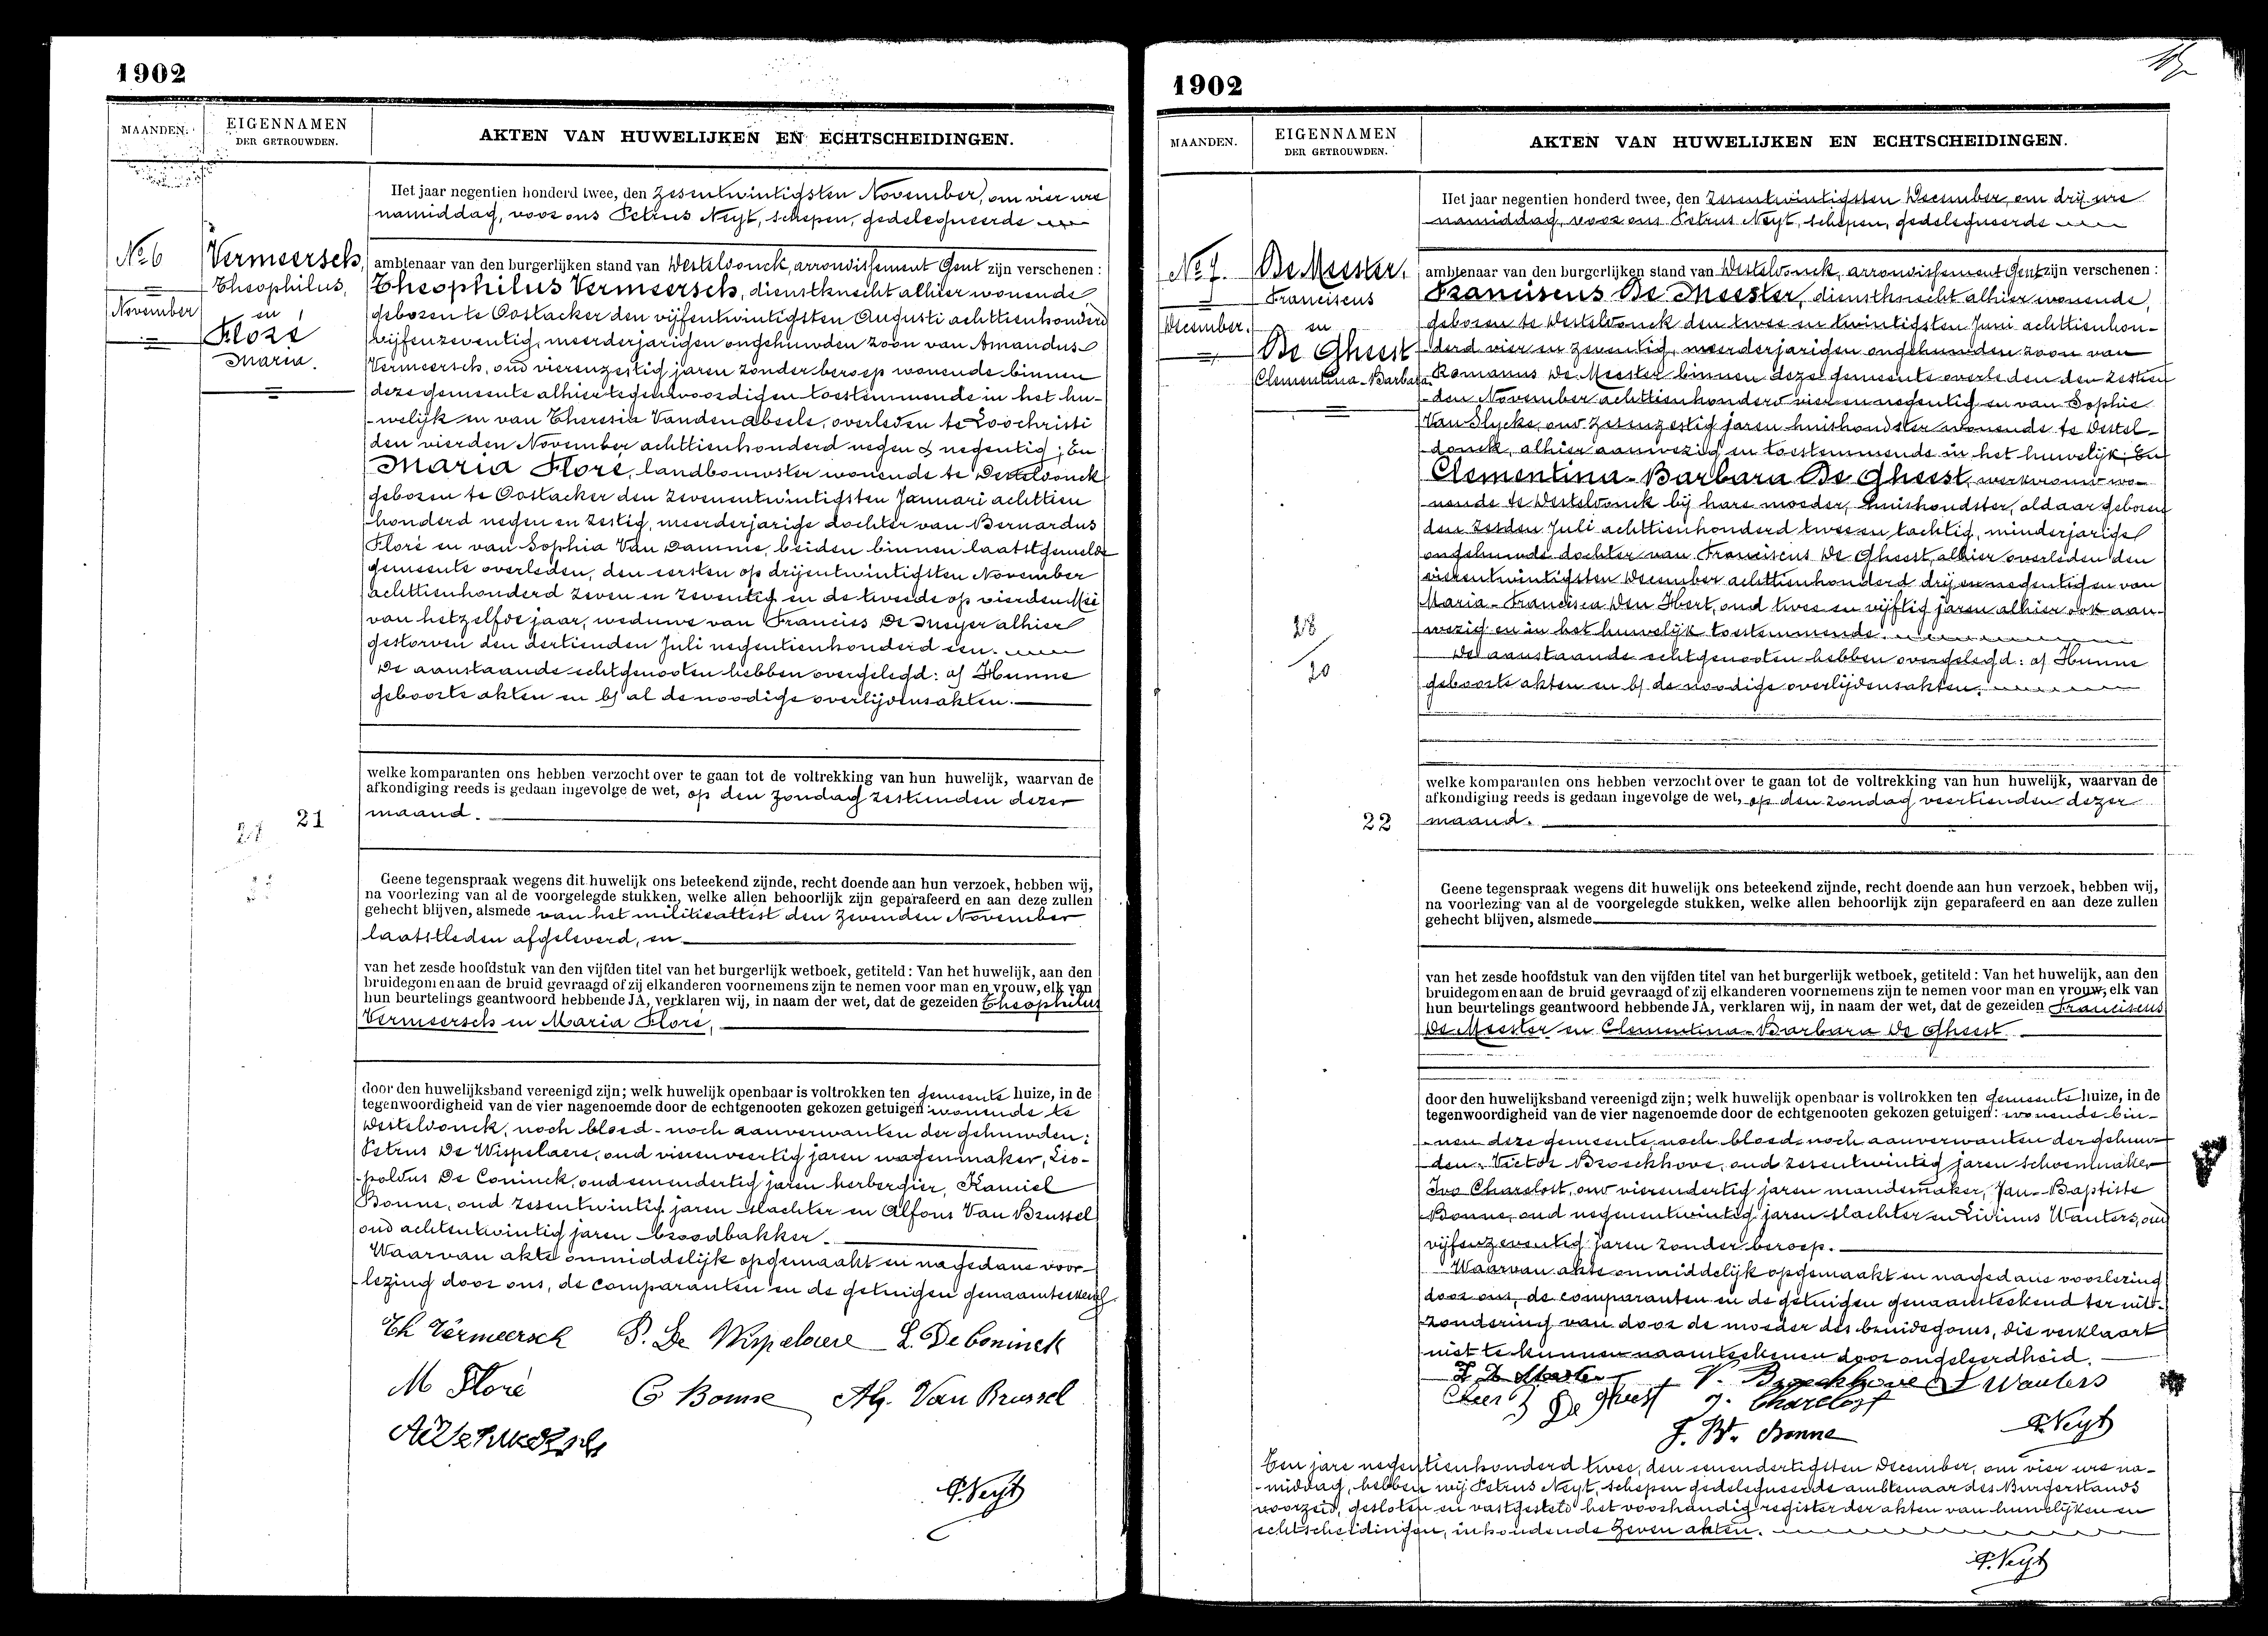 1902
MAANDEN.
EIGENNAMEN
DER GETROUWDEN.
AKTEN VAN HUWELIJKEN EN ECHTSCHEIDINGEN.
Het jaar negentien honderd twee, den zesentwintigsten November, om vier ure
namiddag, voor ons Petrus Neyt, schepen, gedelegueerde
No 6
November
Vermeersch,
Theophilus,
en
Floré
Maria.
ambtenaar van den burgerlijken stand van Desteldonck, arrondissement Gent zijn verschenen:
Theophilus Vermeersch, dienstknecht alhier wonende,
geboren te Oostacker den vijfentwintigsten Augusti achttienhonderd
vijfenzeventig, meerderjarigen ongehuwden zoon van Amandus
Vermeersch, oud vierenzestig jaren zonder beroep wonende binnen
deze gemeente alhier tegenwoordig en toestemmende in het hu-
-welijk en van Theresia Vanden Abeele, overleden te Loochristi
den vierden November achttienhonderd negen & negentig; En
Maria Floré, landbouwster wonende te Desteldonck
geboren te Oostacker den zevenentwintigsten Januari achttien
honderd negen en zestig, meerderjarige dochter van Bernardus
Floré en van Sophia Van Damme, beiden binnen laatstgemelde
gemeente overleden, den eersten op drijentwintigsten November
achttienhonderd zeven en zeventig en de tweede op vierden Mei
van hetzelfde jaar, weduwe van Francies De Meyer alhier
gestorven den dertienden Juli negentienhonderd een.
De aanstaande echtgenooten hebben overgelegd: a/ Hunne
geboorte akten en b/ al de noodige overlijdensakten.
welke komparanten ons hebben verzocht over te gaan tot de voltrekking van hun huwelijk, waarvan de
afkondiging reeds is gedaan ingevolge de wet, op den zondag zestienden dezer
maand.
21
Geene tegenspraak wegens dit huwelijk ons beteekend zijnde, recht doende aan hun verzoek, hebben wij,
na voorlezing van al de voorgelegde stukken, welke allen behoorlijk zijn geparafeerd en aan deze zullen
gehecht blijven, alsmede van het militieattest den zevenden November
laatstleden afgeleverd, en
van het zesde hoofdstuk van den vijfden titel van het burgerlijk wetboek, getiteld: Van het huwelijk, aan den
bruidegom en aan de bruid gevraagd of zij elkanderen voornemens zijn te nemen voor man en vrouw, elk van
hun beurtelings geantwoord hebbende JA, verklaren wij, in naam der wet, dat de gezeiden Theophilus
Vermeersch en Maria Floré,
door den huwelijksband vereenigd zijn; welk huwelijk openbaar is voltrokken ten gemeente huize, in de
tegenwoordigheid van de vier nagenoemde door de echtgenooten gekozen getuigen: wonende te
Desteldonck, noch bloed- noch aanverwanten der gehuwden:
Petrus De Wispelaere, oud vierenveertig jaren wagenmaker, Leo-
-poldus De Coninck, oud eenendertig jaren herbergier, Kamiel
Bonne, oud zesentwintig jaren slachter en Alfons Van Brussel
oud achtentwintig jaren broodbakker.
Waarvan akte onmiddelijk opgemaakt en na gedane voor-
-lezing door ons, de comparanten en de getuigen genaamteekend
Th Vermeersch P. De Wispelaere L. De Coninck
M Floré C Bonne Alf. Van Brussel
P. Neyt
1902
MAANDEN.
EIGENNAMEN
DER GETROUWDEN.
AKTEN VAN HUWELIJKEN EN ECHTSCHEIDINGEN.
Het jaar negentien honderd twee, den zesentwintigsten December, om drij ure
namiddag, voor ons Petrus Neyt, schepen, gedelegueerde
No 7.
December.
De Meester,
Franciscus
en
De Gheest
Clementina-Barbara
ambtenaar van den burgerlijken stand van Desteldonck, arrondissement Gent zijn verschenen:
Franciscus De Meester, dienstknecht alhier wonende,
geboren te Desteldonck den twee en twintigsten Juni achttienhon-
derd vier en zeventig, meerderjarigen ongehuwden zoon van
Romanus De Meester binnen deze gemeente overleden den zestien
-den November achttienhonderd vier en negentig en van Sophie
Van Slycke, oud zesenzestig jaren huishoudster wonende te Destel-
-donck, alhier aanwezig en toestemmende in het huwelijk; En
Clementina-Barbara De Gheest, werkvrouw wo-
nende te Desteldonck bij hare moeder, huishoudster, aldaar geboren
den zesden Juli achttienhonderd twee en tachtig, minderjarige
ongehuwde dochter van Franciscus De Gheest, alhier overleden den
vierentwintigsten December achttienhonderd drij en negentig en van
Maria-Francisca Den Hert, oud twee en vijftig jaren alhier ook aan-
wezig en in het huwelijk toestemmende.
De aanstaande echtgenooten hebben overgelegd: a/ Hunne
geboorte akten en b/ de noodige overlijdensakten.
28
20
welke komparanten ons hebben verzocht over te gaan tot de voltrekking van hun huwelijk, waarvan de
afkondiging reeds is gedaan ingevolge de wet, op den zondag veertienden dezer
maand.
22
Geene tegenspraak wegens dit huwelijk ons beteekend zijnde, recht doende aan hun verzoek, hebben wij,
na voorlezing van al de voorgelegde stukken, welke allen behoorlijk zijn geparafeerd en aan deze zullen
gehecht blijven, alsmede
van het zesde hoofdstuk van den vijfden titel van het burgerlijk wetboek, getiteld: Van het huwelijk, aan den
bruidegom en aan de bruid gevraagd of zij elkanderen voornemens zijn te nemen voor man en vrouw, elk van
hun beurtelings geantwoord hebbende JA, verklaren wij, in naam der wet, dat de gezeiden Franciscus
De Meester en Clementina-Barbara De Gheest
door den huwelijksband vereenigd zijn; welk huwelijk openbaar is voltrokken ten gemeente huize, in de
tegenwoordigheid van de vier nagenoemde door de echtgenooten gekozen getuigen: wonende bin-
-nen deze gemeente noch bloed- noch aanverwanten der gehuw-
den: Victor Broeckhove, oud zesentwintig jaren schoenmaker
Ivo Charelost, oud vierendertig jaren mandemaker, Jan-Baptiste
Bonne, oud negenentwintig jaren slachter en Livinus Wauters, oud
vijfenzeventig jaren zonder beroep.
Waarvan akte onmiddelijk opgemaakt en na gedane voorlezing
door ons, de comparanten en de getuigen genaamteekend ter uit-
zondering van door de moeder des bruidegoms, die verklaart
niet te kunnen naamteekenen door ongeleerdheid.
V. Broeckhove L Wauters
De Gheest J. Charelost
J. Bt. Bonne P. Neyt
Ten jare negentienhonderd twee, den eenendertigsten December, om vier ure na-
-middag, hebben wij Petrus Neyt, schepen gedelegueerde ambtenaar des Burgerstands
voorzeid, gesloten en vastgesteld het voorhandig register der akten van huwelijken en
echtscheidingen, inhoudende zeven akten.
P. Neyt